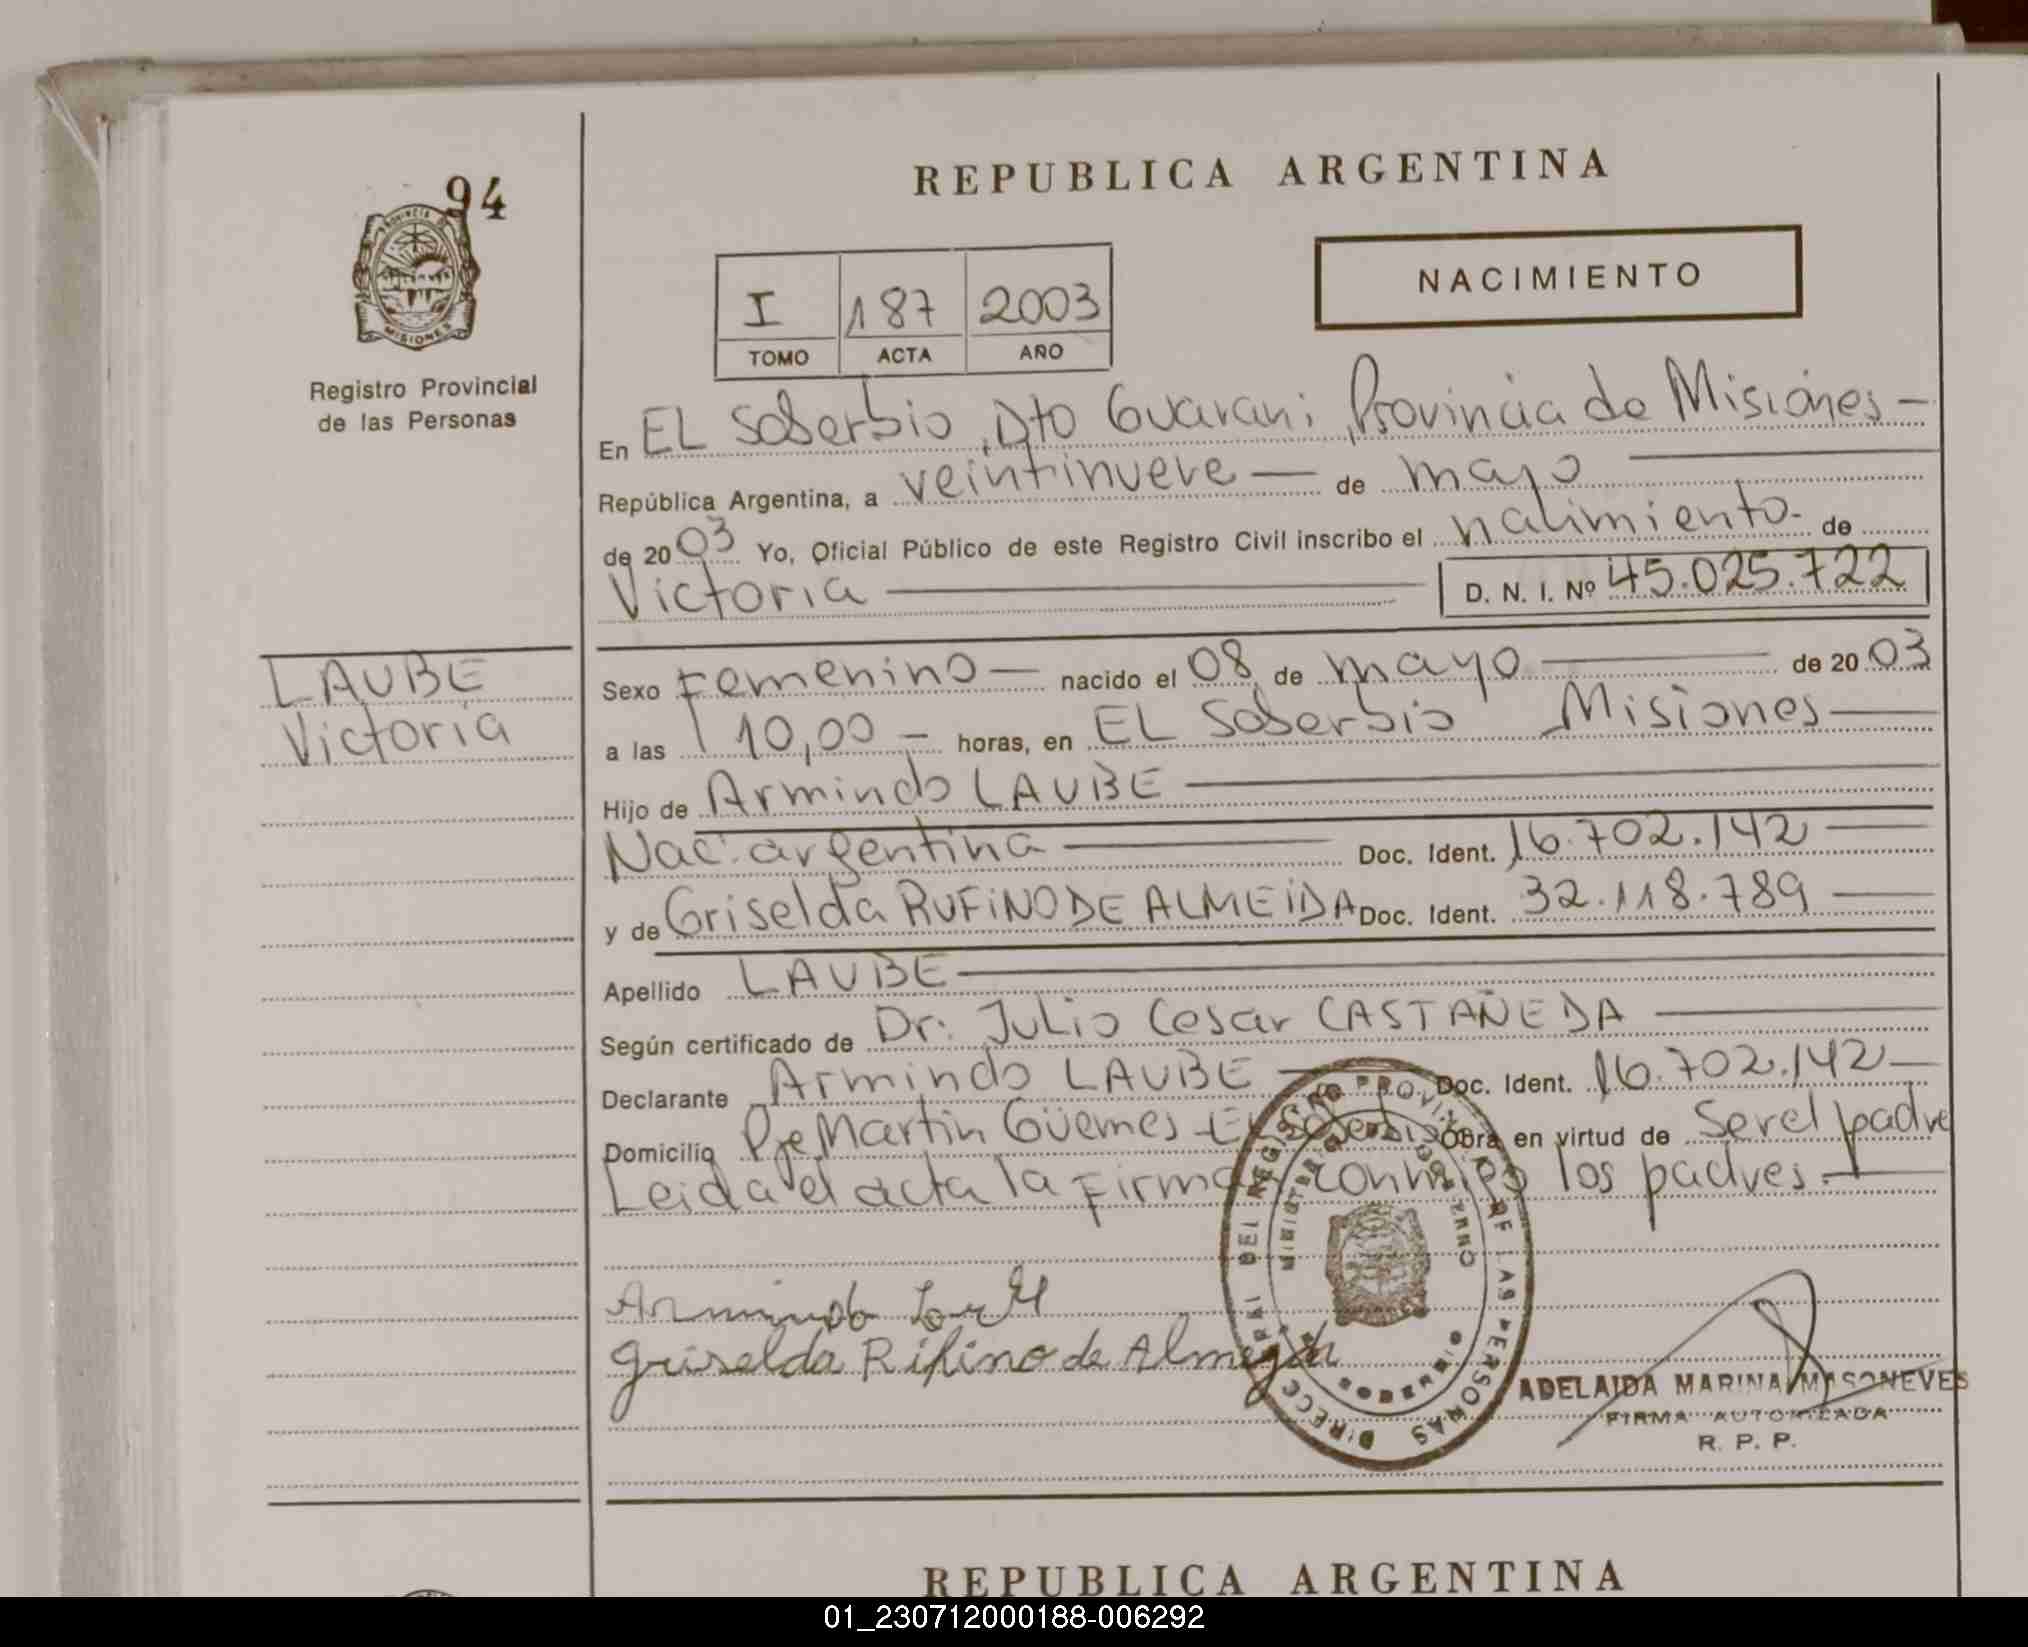 94
PROVINCIA DE
MISIONES
Registro Provincial
de las Personas
REPUBLICA ARGENTINA
NACIMIENTO
I 187 2003
TOMO ACTA AÑO
En EL Soberbio, Dto Guarani, Provincia de Misiones -
República Argentina, a veintinueve — de mayo —
de 2003 Yo, Oficial Público de este Registro Civil inscribo el nacimiento - de
Victoria — D. N. I. Nº 45.025.722
LAUBE
Victoria
Sexo Femenino — nacido el 08 de mayo — de 2003
a las 10,00 - horas, en EL Soberbio Misiones —
Hijo de Armindo LAUBE —
Nac. argentina — Doc. Ident. 16.702.142 —
y de Griselda RUFINO DE ALMEIDA Doc. Ident. 32.118.789 —
Apellido LAUBE —
Según certificado de Dr. Julio Cesar CASTAÑEDA —
Declarante Armindo LAUBE — Doc. Ident. 16.702.142 —
Domicilio Pje Martin Güemes - El Soberbio Obra en virtud de Ser el padre
Leida el acta la firman conmigo los padres. —
Armindo
Griselda Rifino de Almeyda
DIRECC GRAL DEL REGISTRO PROVINC DE LAS PERSONAS
MINISTERIO DE GOBIERNO
ADELAIDA MARINA MASONEVES
FIRMA AUTORIZADA
R. P. P.
REPUBLICA ARGENTINA
01_230712000188-006292